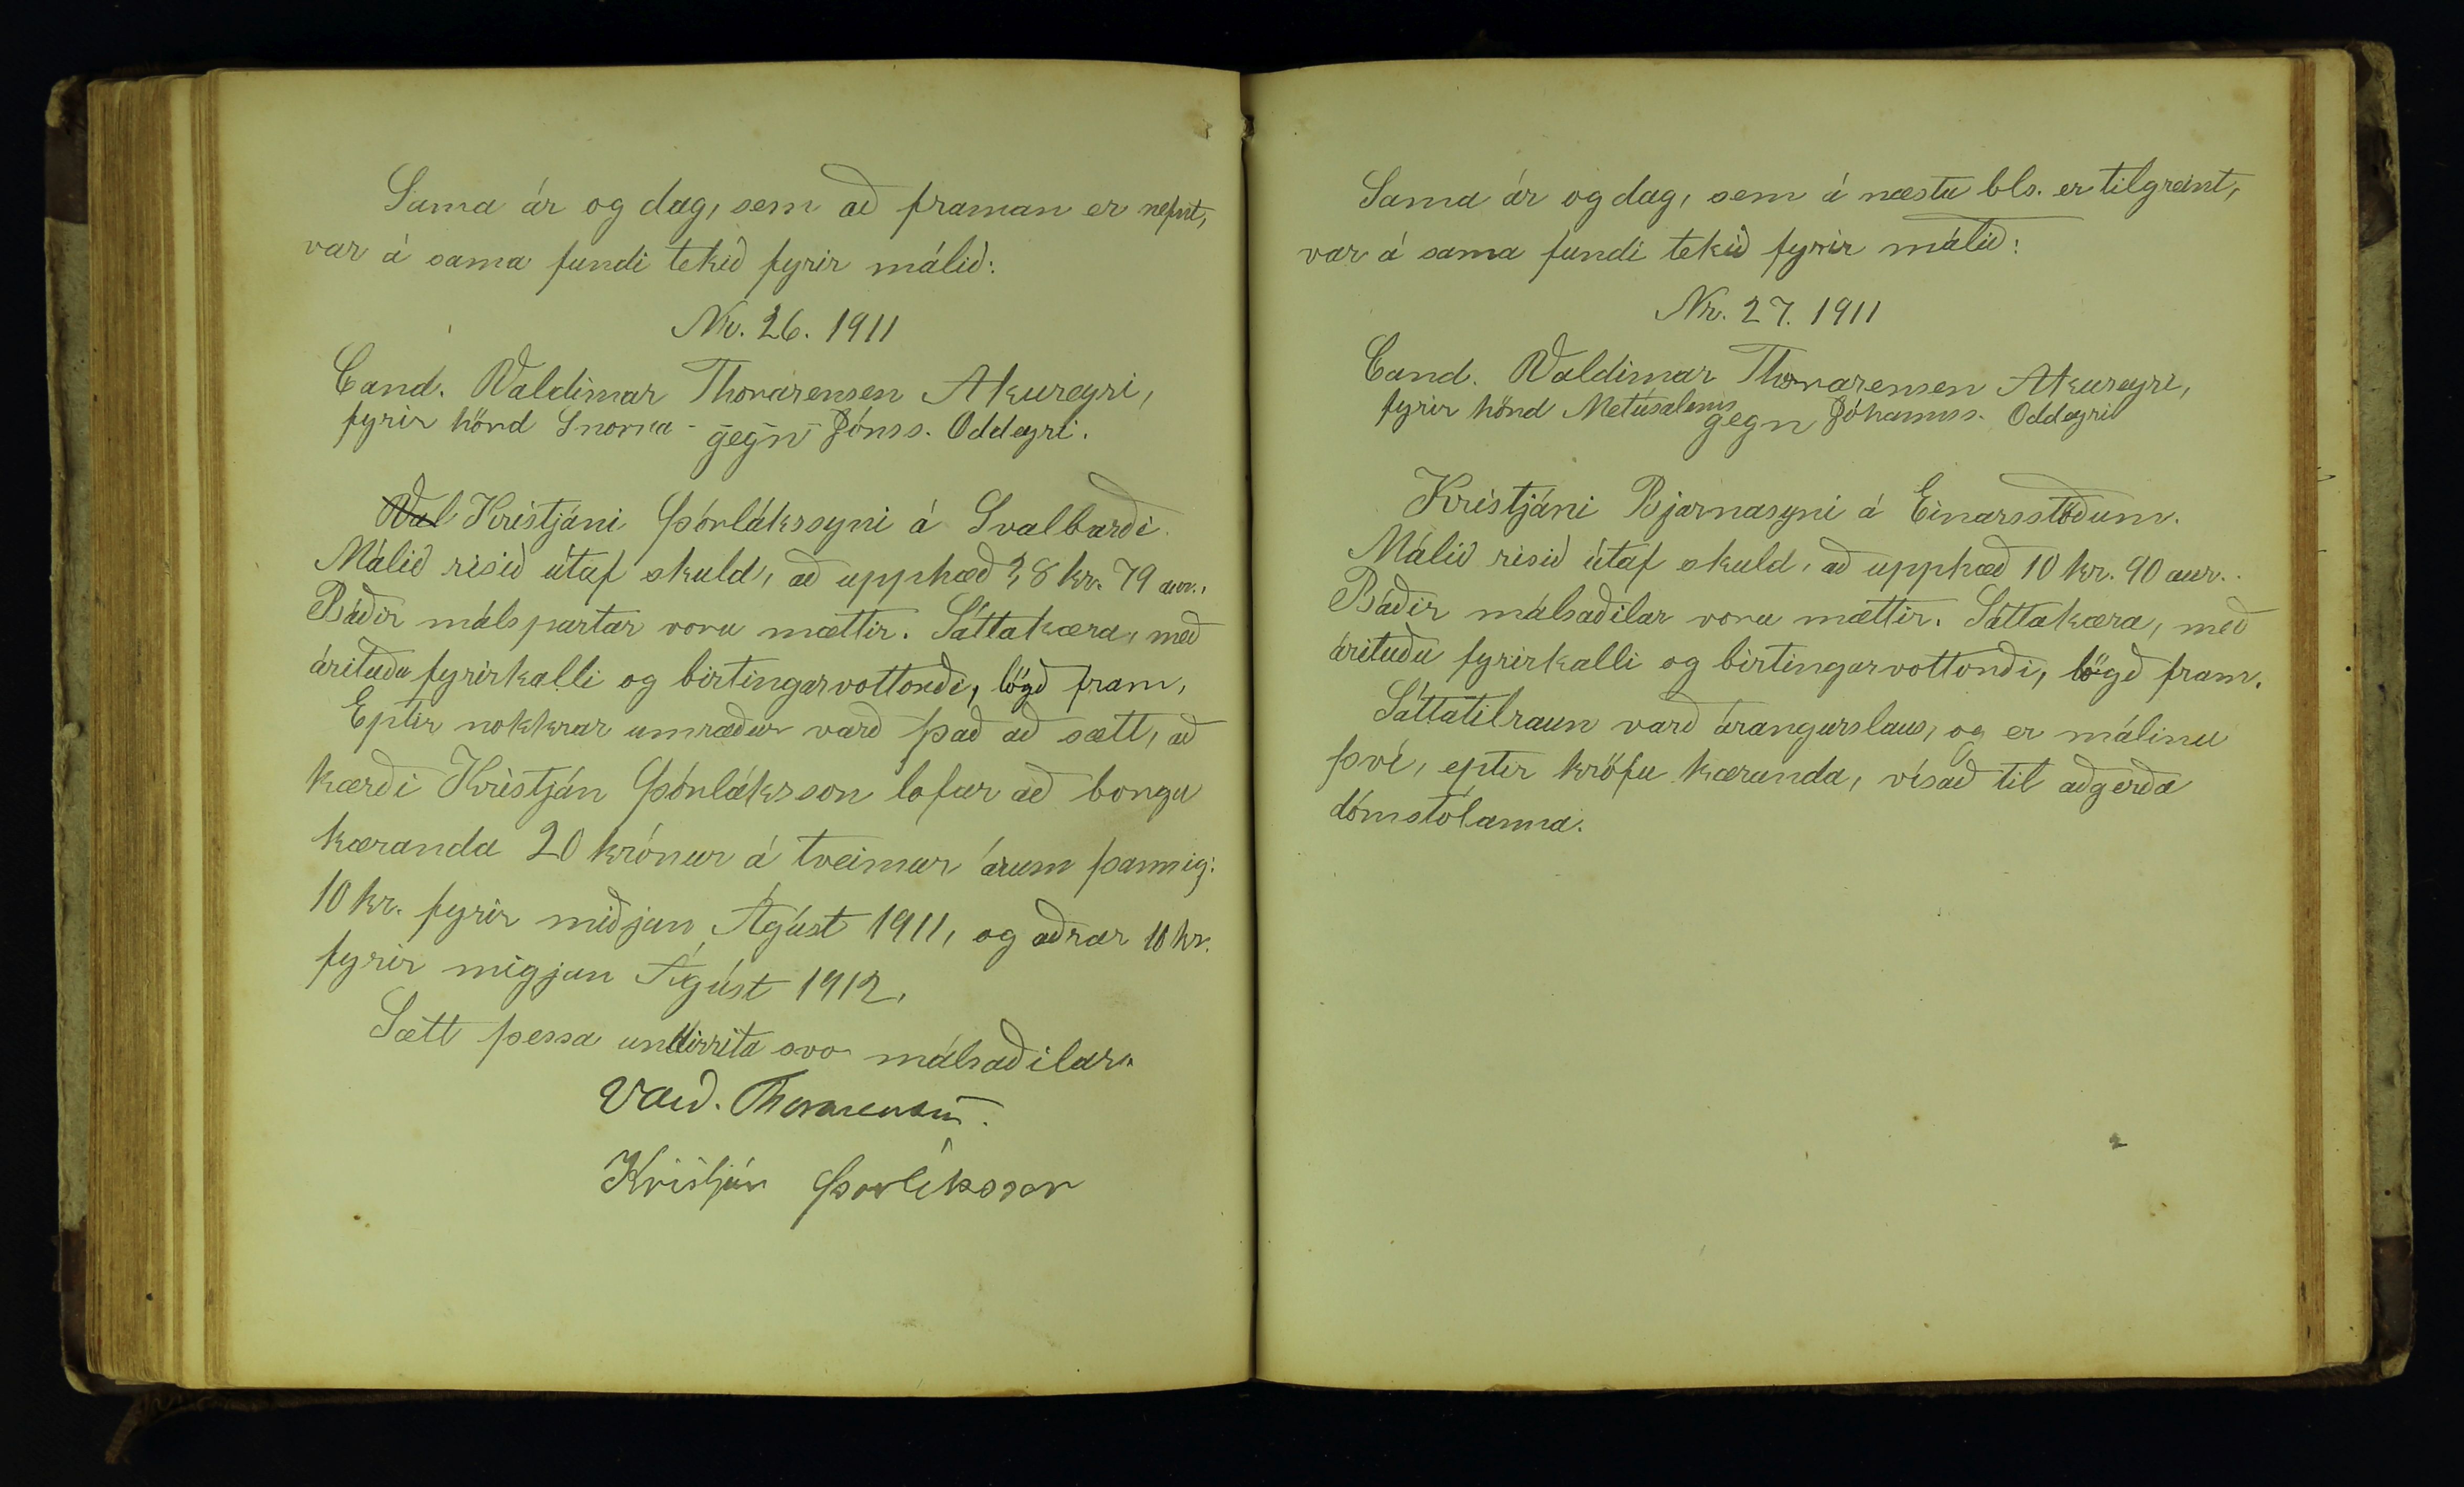 Sama ár og dag, sem að framan er nefnt,
var á sama fundi tekið fyrir málið:
Nr. 26. 1911
Cand. Valdimar Thorarensen Akureyri,
fyrir hönd Snorra - gegn Jónss. Oddeyri.
Val Kristjáni Þórlákssyni á Svalbarði.
Málið risið útaf skuld, að upphæð 28 kr. 79 aur.,
Báðir málspartar voru mættir. Sáttakæra, með
árituðu fyrirkalli og birtingarvottorði, lögð fram.
Eptir nokkrar umræður varð það að sætt, að
kærði Kristján Þórláksson lofar að borga
kæranda 20 krónur á tveimur árum þannig:
10 kr. fyrir miðjan Ágúst 1911, og aðrar 10 kr.
fyrir migjan Ágúst 1912.
Sætt þessa undirrita svo málsaðilar.
Vald. Thorarensen.
Kristján Þorláksson
Sama ár og dag, sem á næstu bls. er tilgreint,
var á sama fundi tekið fyrir málið:
Nr. 27. 1911
Cand. Valdimar Thorarensen Akureyri,
fyrir hönd Metúsalems gegn Jóhannss. Oddeyri
Kristjáni Bjarnasyni á Einarsstöðum.
Málið risið útaf skuld, að upphæð 10 kr. 90 aur..
Báðir málsaðilar voru mættir. Sáttakæra, með
árituðu fyrirkalli og birtingarvottorði, lögð fram.
Sáttatilraun varð árangurslaus, og er málinu
því, eptir kröfu kæranda, vísað til aðgerða
dómstólanna.